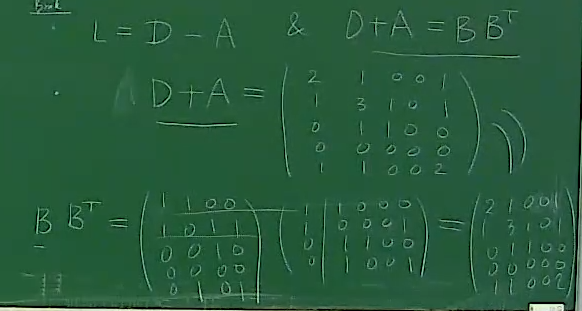 Book
· L = D - A & D+A = B Bᵀ
· D+A = ( 2 1 0 0 1
1 3 1 0 1
0 1 1 0 0
0 0 0 0 0
1 1 0 0 2 )
B Bᵀ = ( 1 1 0 0
1 0 1 1
0 0 1 0
0 0 0 0
0 1 0 1 ) ( 1 1 0 0 0
1 0 0 0 1
0 1 1 0 0
0 1 0 0 1 ) = ( 2 1 0 0 1
1 3 1 0 1
0 1 1 0 0
0 0 0 0 0
1 1 0 0 2 )